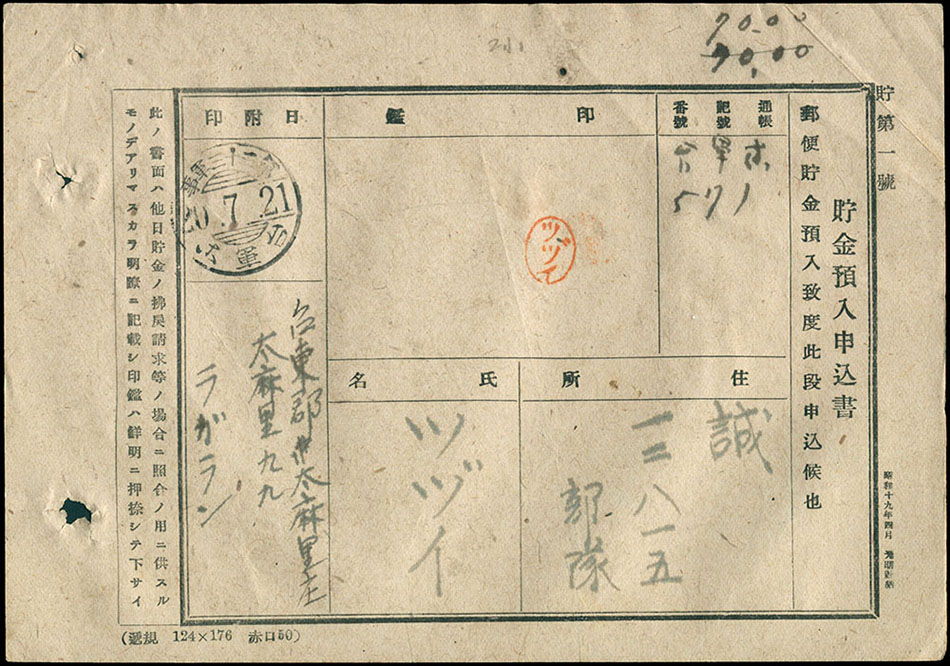 70.00
70.00
貯第一號
貯金預入申込書
郵便貯金預入致度此段申込候也
昭和十九年四月
通帳
記號
番號
571
印鑑
ツヅイ
日附印
20.7.21
住所
誠
一二八一五
部隊
氏名
ツヅイ
台東郡太麻里庄
太麻里九九
ラガラン
此ノ書面ハ他日貯金ノ拂戻請求等ノ場合ニ照合ノ用ニ供スル
モノデアリマスカラ明瞭ニ記載シ印鑑ハ鮮明ニ押捺シテ下サイ
(遞規 124×176 赤口50)